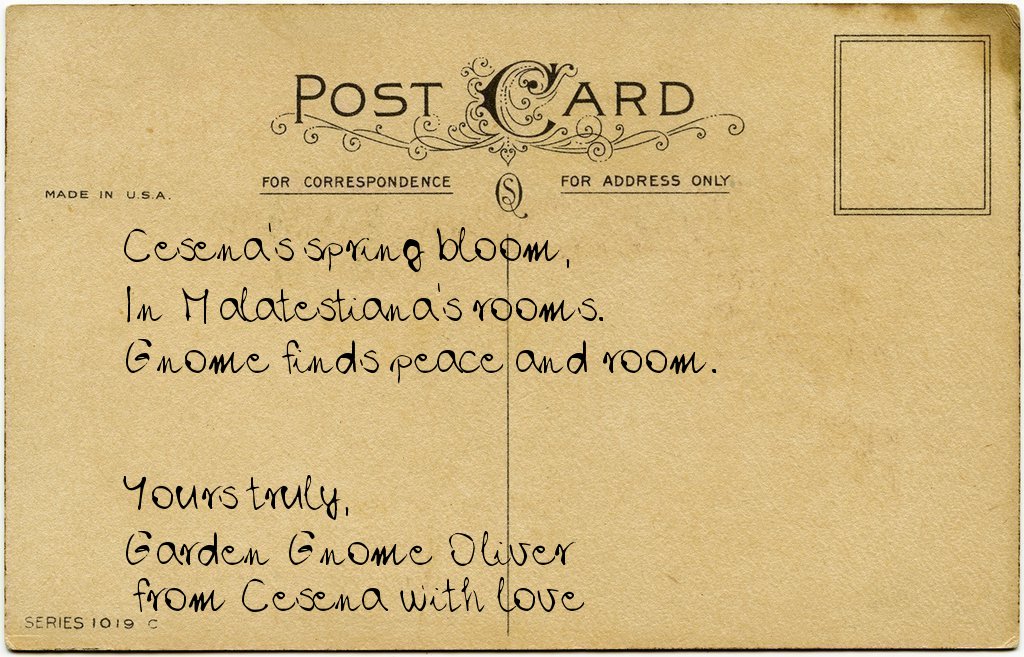 POST CARD
FOR CORRESPONDENCE
FOR ADDRESS ONLY
MADE IN U.S.A.
Cesena's spring bloom,
In Malatestiana's rooms.
Gnome finds peace and room.
Yours truly,
Garden Gnome Oliver
from Cesena with love
SERIES 1019 C